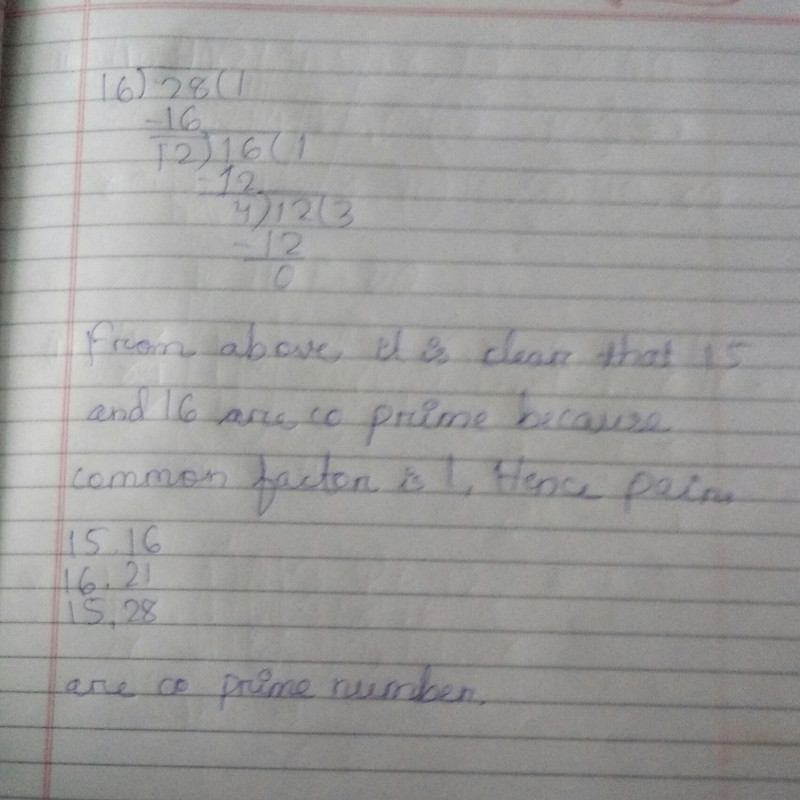 16) 28 (1
-16
12) 16 (1
-12
4) 12 (3
-12
0
From above, it is clear that 15
and 16 are co prime because
common factor is 1, Hence pair
15, 16
16, 21
15, 28
are co prime number.